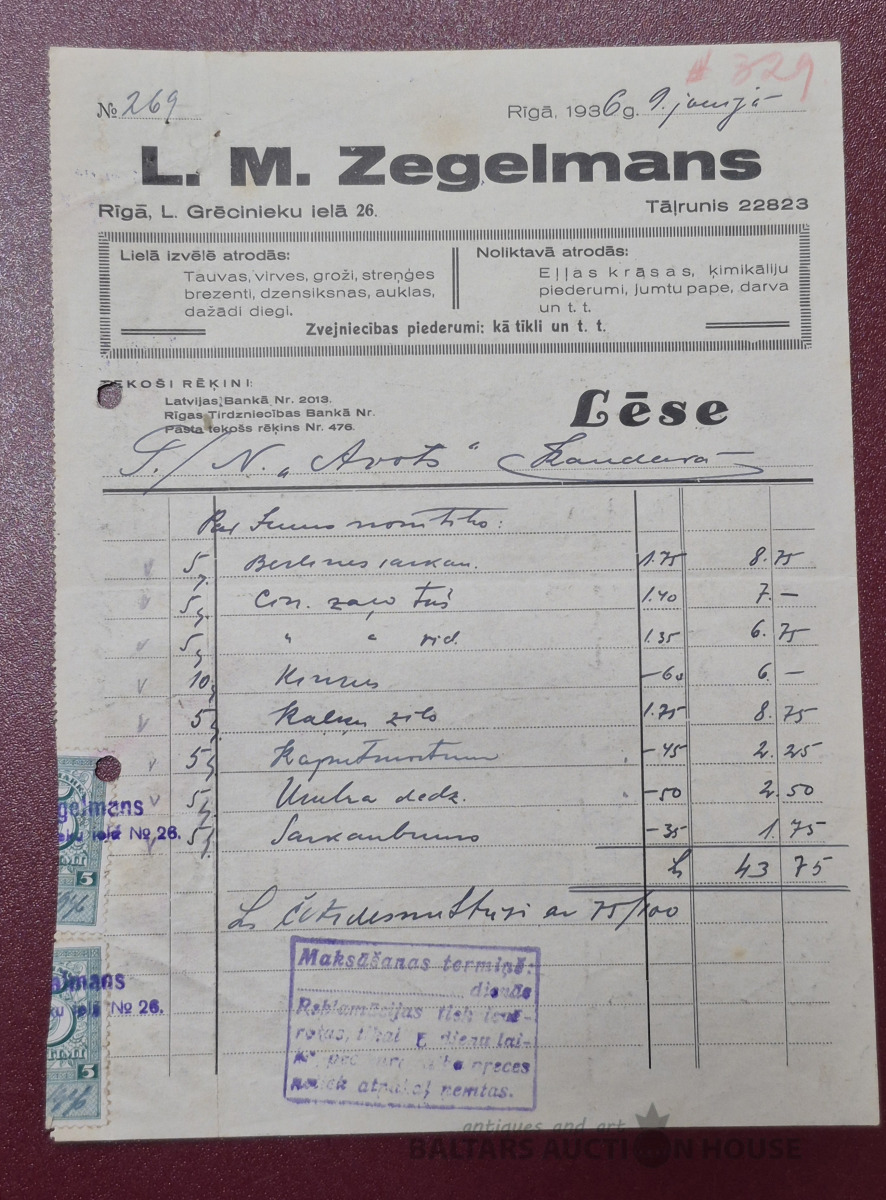 # 329
№ 269 Rīgā, 1936 g. 9. jūnijā
L. M. Zegelmans
Rīgā, L. Grēcinieku ielā 26. Tāļrunis 22823
Lielā izvēlē atrodās:
Tauvas, virves, groži, streņģes
brezenti, dzensiksnas, auklas,
dažādi diegi.
Noliktavā atrodās:
Eļļas krāsas, ķimikāliju
piederumi, jumtu pape, darva
un t. t.
Zvejniecības piederumi: kā tīkli un t. t.
TEKOŠI RĒĶINI:
Latvijas Bankā Nr. 2013.
Rīgas Tirdzniecības Bankā Nr.
Pasta tekošs rēķins Nr. 476.
Lēse
N. „Avots“ Kandavā
Par Jums nosūtīto:
5 Berlines sarkan. 1.75 8.75
5 zaļo 1.40 7.—
5 " " vid. 1.35 6.75
10 —60 6.—
5 zilo 1.75 8.75
5 —45 2.25
5 Umbra dedz. —50 2.50
5 Sarkanbrūns —35 1.75
Ls 43 75
Ls četrdesmittrīsi ar 75/100
Maksāšanas termiņš:
dienās
Reklamācijas tiek ievē-
rotas, tikai dienu lai-
preces
netiek atpakaļ ņemtas.
gelmans
ielā No 26.
5
lmans
ielā No 26.
5
antiques and art
BALTARS AUCTION HOUSE